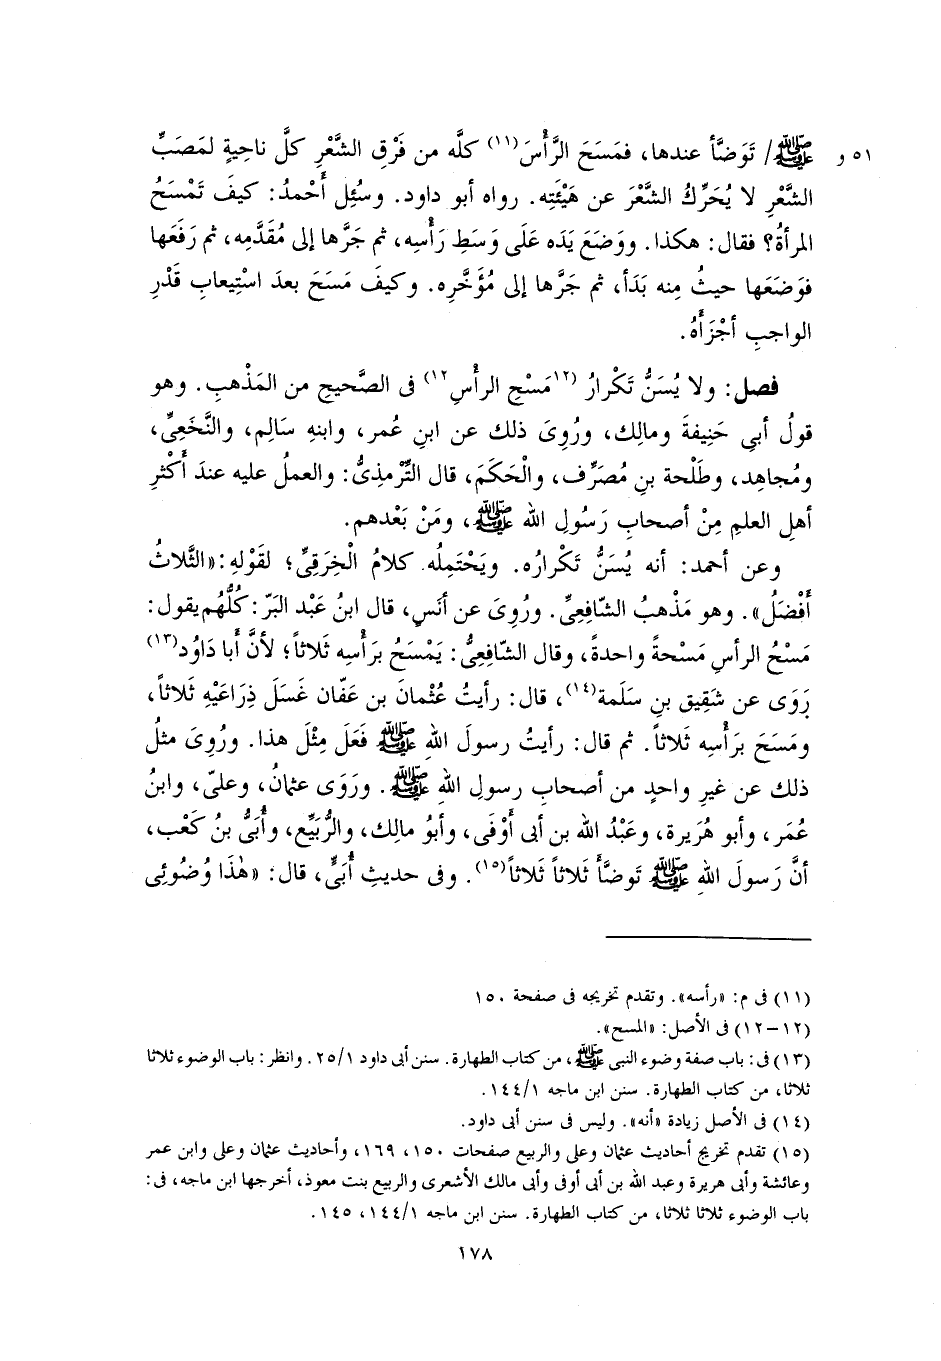 ﷺ/ تَوَضَّأ عندها، فمَسَحَ الرَّأْسَ(١١) كلَّه من فَرْقِ الشَّعْرِ كلَّ ناحيةٍ لمَصَبِّ ٥١ و
الشَّعْرِ لا يُحَرِّكُ الشَّعْرَ عن هَيْئَتِه. رواه أبو داود. وسُئِل أَحْمدُ: كيفَ تَمْسَحُ
المرأةُ؟ فقال: هكذا. ووَضَعَ يَدَه عَلَى وَسَطِ رَأْسِه، ثم جَرَّها إلى مُقَدَّمِه، ثم رَفَعَها
فوَضَعَها حيثُ مِنه بَدَأ، ثم جَرَّها إلى مُؤَخَّرِه. وكيفَ مَسَحَ بعدَ اسْتِيعابِ قَدْرِ
الواجبِ أجْزَأَهُ.
فصل: ولا يُسَنُّ تَكْرارُ (١٢مَسْحِ الرأْسِ١٢) فى الصَّحيحِ من المَذْهبِ. وهو
قولُ أبى حَنِيفةَ ومالِك، ورُوِىَ ذلك عن ابنِ عُمر، وابنهِ سَالِم، والنَّخَعِىِّ،
ومُجاهِد، وطَلْحة بنِ مُصَرِّف، والْحَكَمَ، قال التِّرْمذِىُّ: والعملُ عليه عندَ أكْثرِ
أهلِ العلمِ مِنْ أصحابِ رَسُولِ الله ﷺ، ومَنْ بَعْدهم.
وعن أحمد: أنه يُسَنُّ تَكْرارُه. ويَحْتمِلُه كلامُ الْخِرَقِىِّ؛ لقَوْلهِ: «الثَّلاثُ
أَفْضَلُ». وهو مَذْهبُ الشّافِعِىِّ. ورُوِىَ عن أنَسٍ، قال ابنُ عَبْد البَرّ: كُلُّهُم يقول:
مَسْحُ الرأسِ مَسْحةً واحدةً، وقال الشافِعِىُّ: يَمْسَحُ بَرأْسِه ثَلاثاً؛ لأنَّ أبا دَاوُد(١٣)
رَوَى عن شَقِيق بنِ سَلَمة(١٤)، قال: رأيتُ عُثْمانَ بن عَفّان غَسَلَ ذِرَاعَيْهِ ثَلاثاً،
ومَسَحَ بَرأْسِه ثَلاثاً. ثم قال: رأيتُ رسولَ اللهِ ﷺ فَعَلَ مِثْلَ هذا. ورُوِىَ مثلُ
ذلك عن غيرِ واحدٍ من أصحابِ رسولِ اللهِ ﷺ. ورَوَى عثمانُ، وعلىّ، وابنُ
عُمَر، وأبو هُرَيرة، وعَبْدُ الله بن أبى أَوْفَى، وأبوُ مالِك، والرُّبَيِّع، وأُبَىُّ بنُ كَعْب،
أنَّ رَسولَ اللهِ ﷺ تَوضَّأَ ثَلاثاً ثَلاثاً(١٥). وفى حديثِ أُبَىٍّ، قال: «هٰذَا وُضُوئِى
(١١) فى م: «رأسه». وتقدم تخريجه فى صفحة ١٥٠
(١٢-١٢) فى الأصل: «المسح».
(١٣) فى: باب صفة وضوء النبى ﷺ، من كتاب الطهارة. سنن أبى داود ٢٥/١. وانظر: باب الوضوء ثلاثا
ثلاثا، من كتاب الطهارة. سنن ابن ماجه ١٤٤/١.
(١٤) فى الأصل زيادة «أنه». وليس فى سنن أبى داود.
(١٥) تقدم تخريج أحاديث عثمان وعلى والربيع صفحات ١٥٠، ١٦٩، وأحاديث عثمان وعلى وابن عمر
وعائشة وأبى هريرة وعبد الله بن أبى أوفى وأبى مالك الأشعرى والربيع بنت معوذ، أخرجها ابن ماجه، فى:
باب الوضوء ثلاثا ثلاثا، من كتاب الطهارة. سنن ابن ماجه ١٤٤/١، ١٤٥.
١٧٨